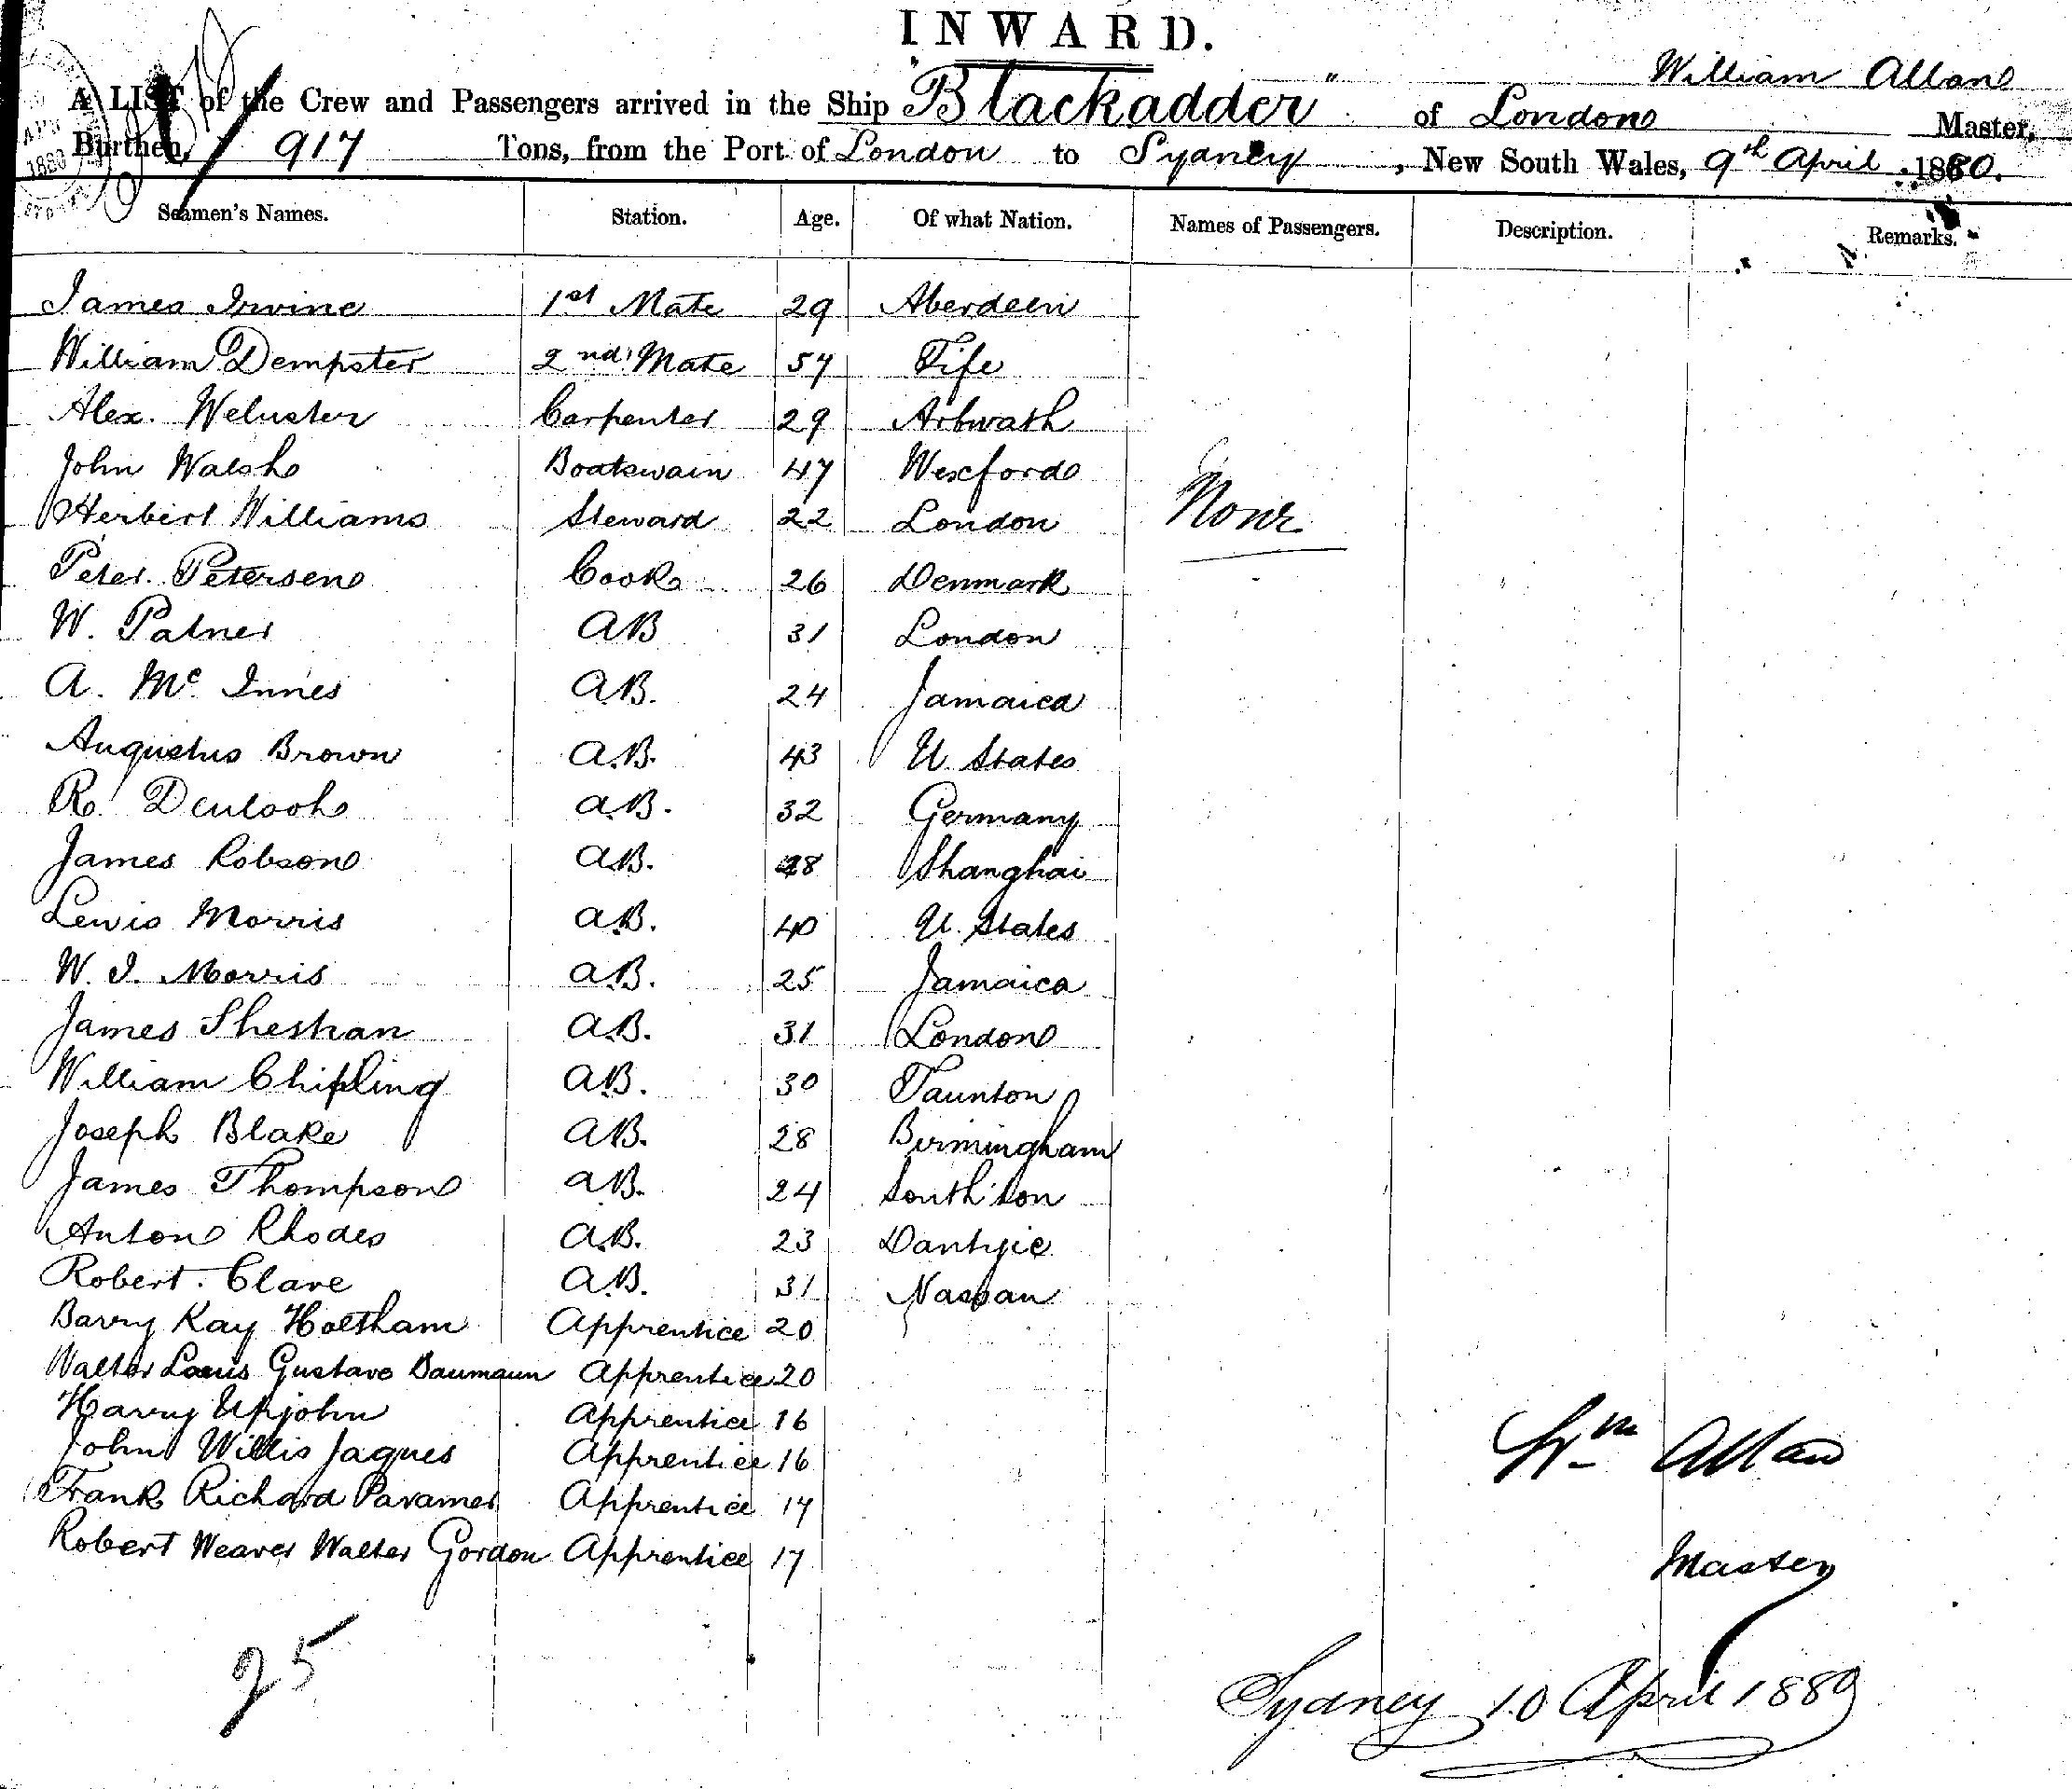 INWARD.
William Allan
A LIST of the Crew and Passengers arrived in the Ship "Blackadder" of London Master,
Burthen, 917 Tons, from the Port of London to Sydney, New South Wales, 9th April 1880.
Seamen's Names. Station. Age. Of what Nation. Names of Passengers. Description. Remarks.
James Irvine 1st Mate 29 Aberdeen
William Dempster 2nd Mate 57 Fife
Alex. Webster Carpenter 29 Arbroath
John Walsh Boatswain 47 Wexford
Herbert Williams Steward 22 London None
Peter Petersen Cook 26 Denmark
W. Palner AB 31 London
A. Mc Innes AB. 24 Jamaica
Augustus Brown A.B. 43 U. States
R. A.B. 32 Germany
James Robson A.B. 28 Shanghai
Lewis Morris A.B. 40 U. States
W. J. Morris A.B. 25 Jamaica
James Sheehan A.B. 31 London
William Chipling A.B. 30 Taunton
Joseph Blake A.B. 28 Birmingham
James Thompson A.B. 24 South'ton
Anton Rhodes A.B. 23 Dantzic
Robert Clare A.B. 31 Nassau
Barry Kay Holtham Apprentice 20
Walter Louis Gustave Baumann Apprentice 20
Harry Upjohn Apprentice 16
John Willis Jaques Apprentice 16
Frank Richard Paramer Apprentice 17
Robert Weaver Walter Gordon Apprentice 17
Wm Allan
Master
25
Sydney 10 April 1880